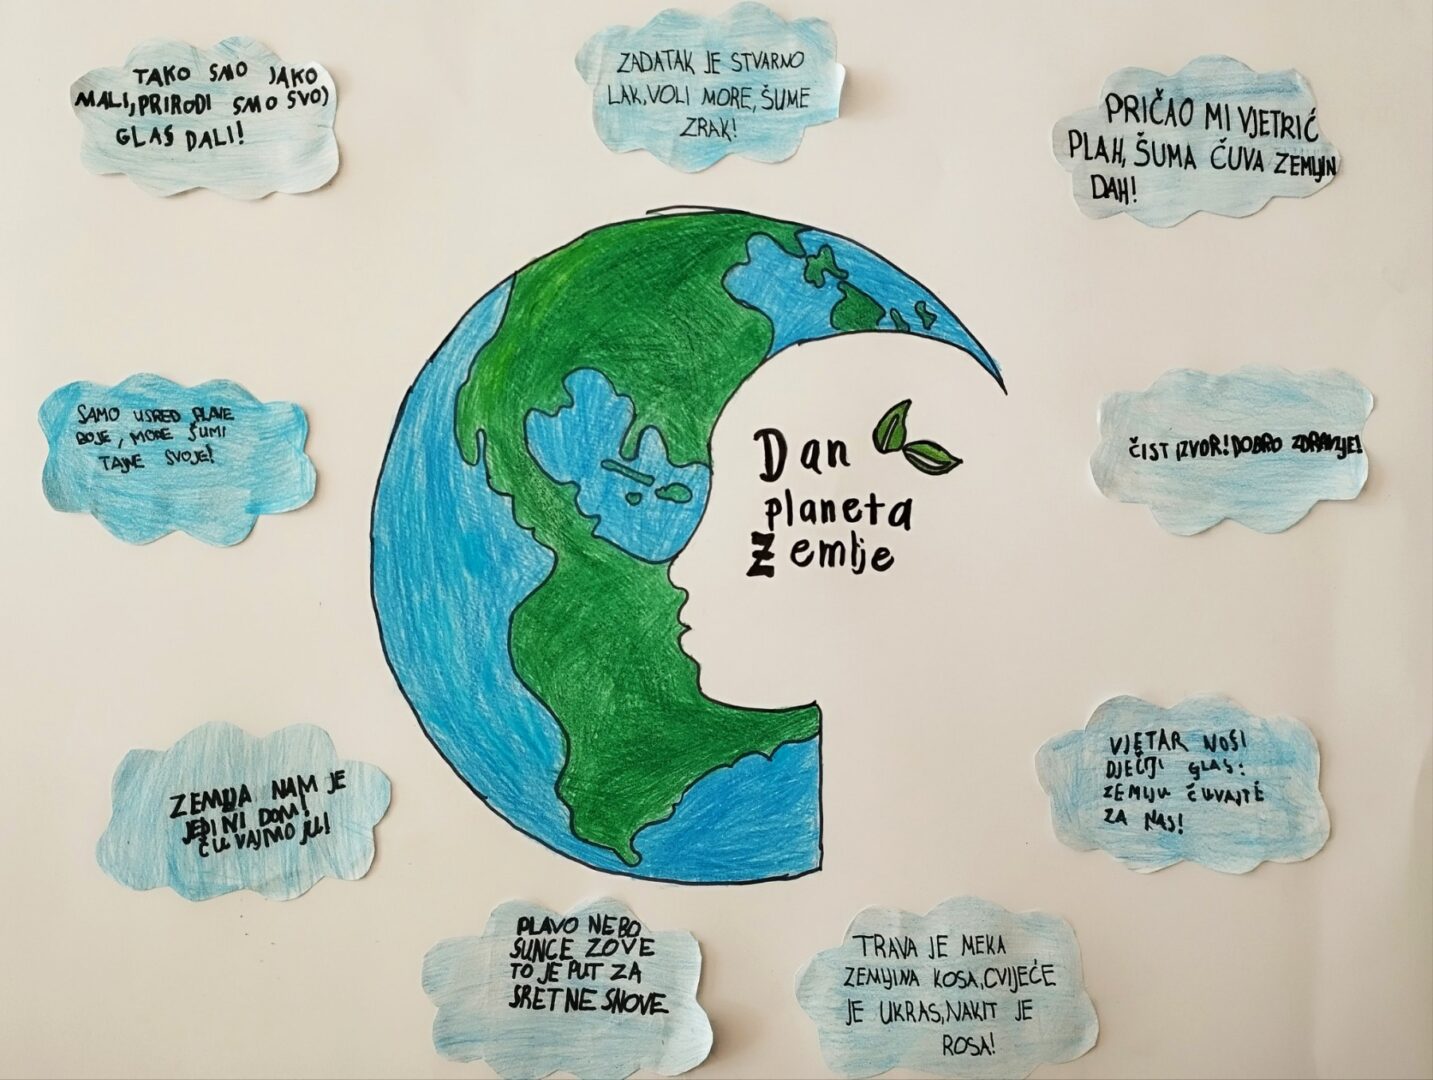 TAKO SMO JAKO
MALI, PRIRODI SMO SVOJ
GLAS DALI!
ZADATAK JE STVARNO
LAK, VOLI MORE, ŠUME
ZRAK!
PRIČAO MI VJETRIĆ
PLAH, ŠUMA ČUVA ZEMLJIN
DAH!
SAMO USRED PLAVE
BOJE, MORE ŠUMI
TAJNE SVOJE!
Dan
planeta
Zemlje
ČIST IZVOR! DOBRO ZDRAVLJE!
ZEMLJA NAM JE
JEDINI DOM!
ČUVAJMO JU!
VJETAR NOSI
DJEČJI GLAS:
ZEMLJU ČUVAJTE
ZA NAS!
PLAVO NEBO
SUNCE ZOVE
TO JE PUT ZA
SRETNE SNOVE
TRAVA JE MEKA
ZEMLJINA KOSA, CVIJEĆE
JE UKRAS, NAKIT JE
ROSA!